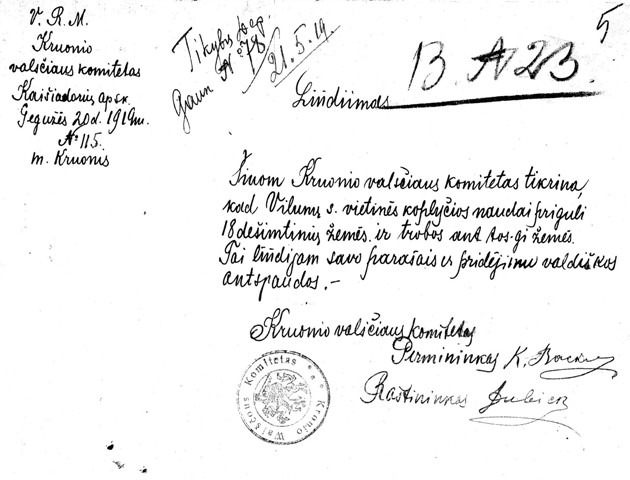 V. R. M.
Kruonio
valsčiaus komitetas
Kaišiadorių apskr.
Gegužės 20 d. 1919 m.
№ 115.
m. Kruonis
Tikybų Dep.
Gauta № 78
21.5.19.
5
13. A 23.
Liūdiimas
Šiuom Kruonio valsčiaus komitetas tikrina,
kad Vilūnų s. vietinės koplyčios naudai priguli
18 dešimtinių žemės ir trobos ant tos-gi žemės.
Tai liūdijam savo parašais ir pridėjimu valdiškos
antspaudos.-
Kruonio valsčiaus komitetas
Permininkas K.
Raštininkas
Kronio Walščous Komitetas